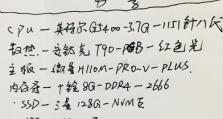 CPU — 英特尔G5400-3.7G-1151针八代
散热 — T90-PB-红色光
主板 — 微星H110M-PRO-V-PLUS.
内存 — 十铨8G-DDR4-2666
·SSD — 三星128G-NVME